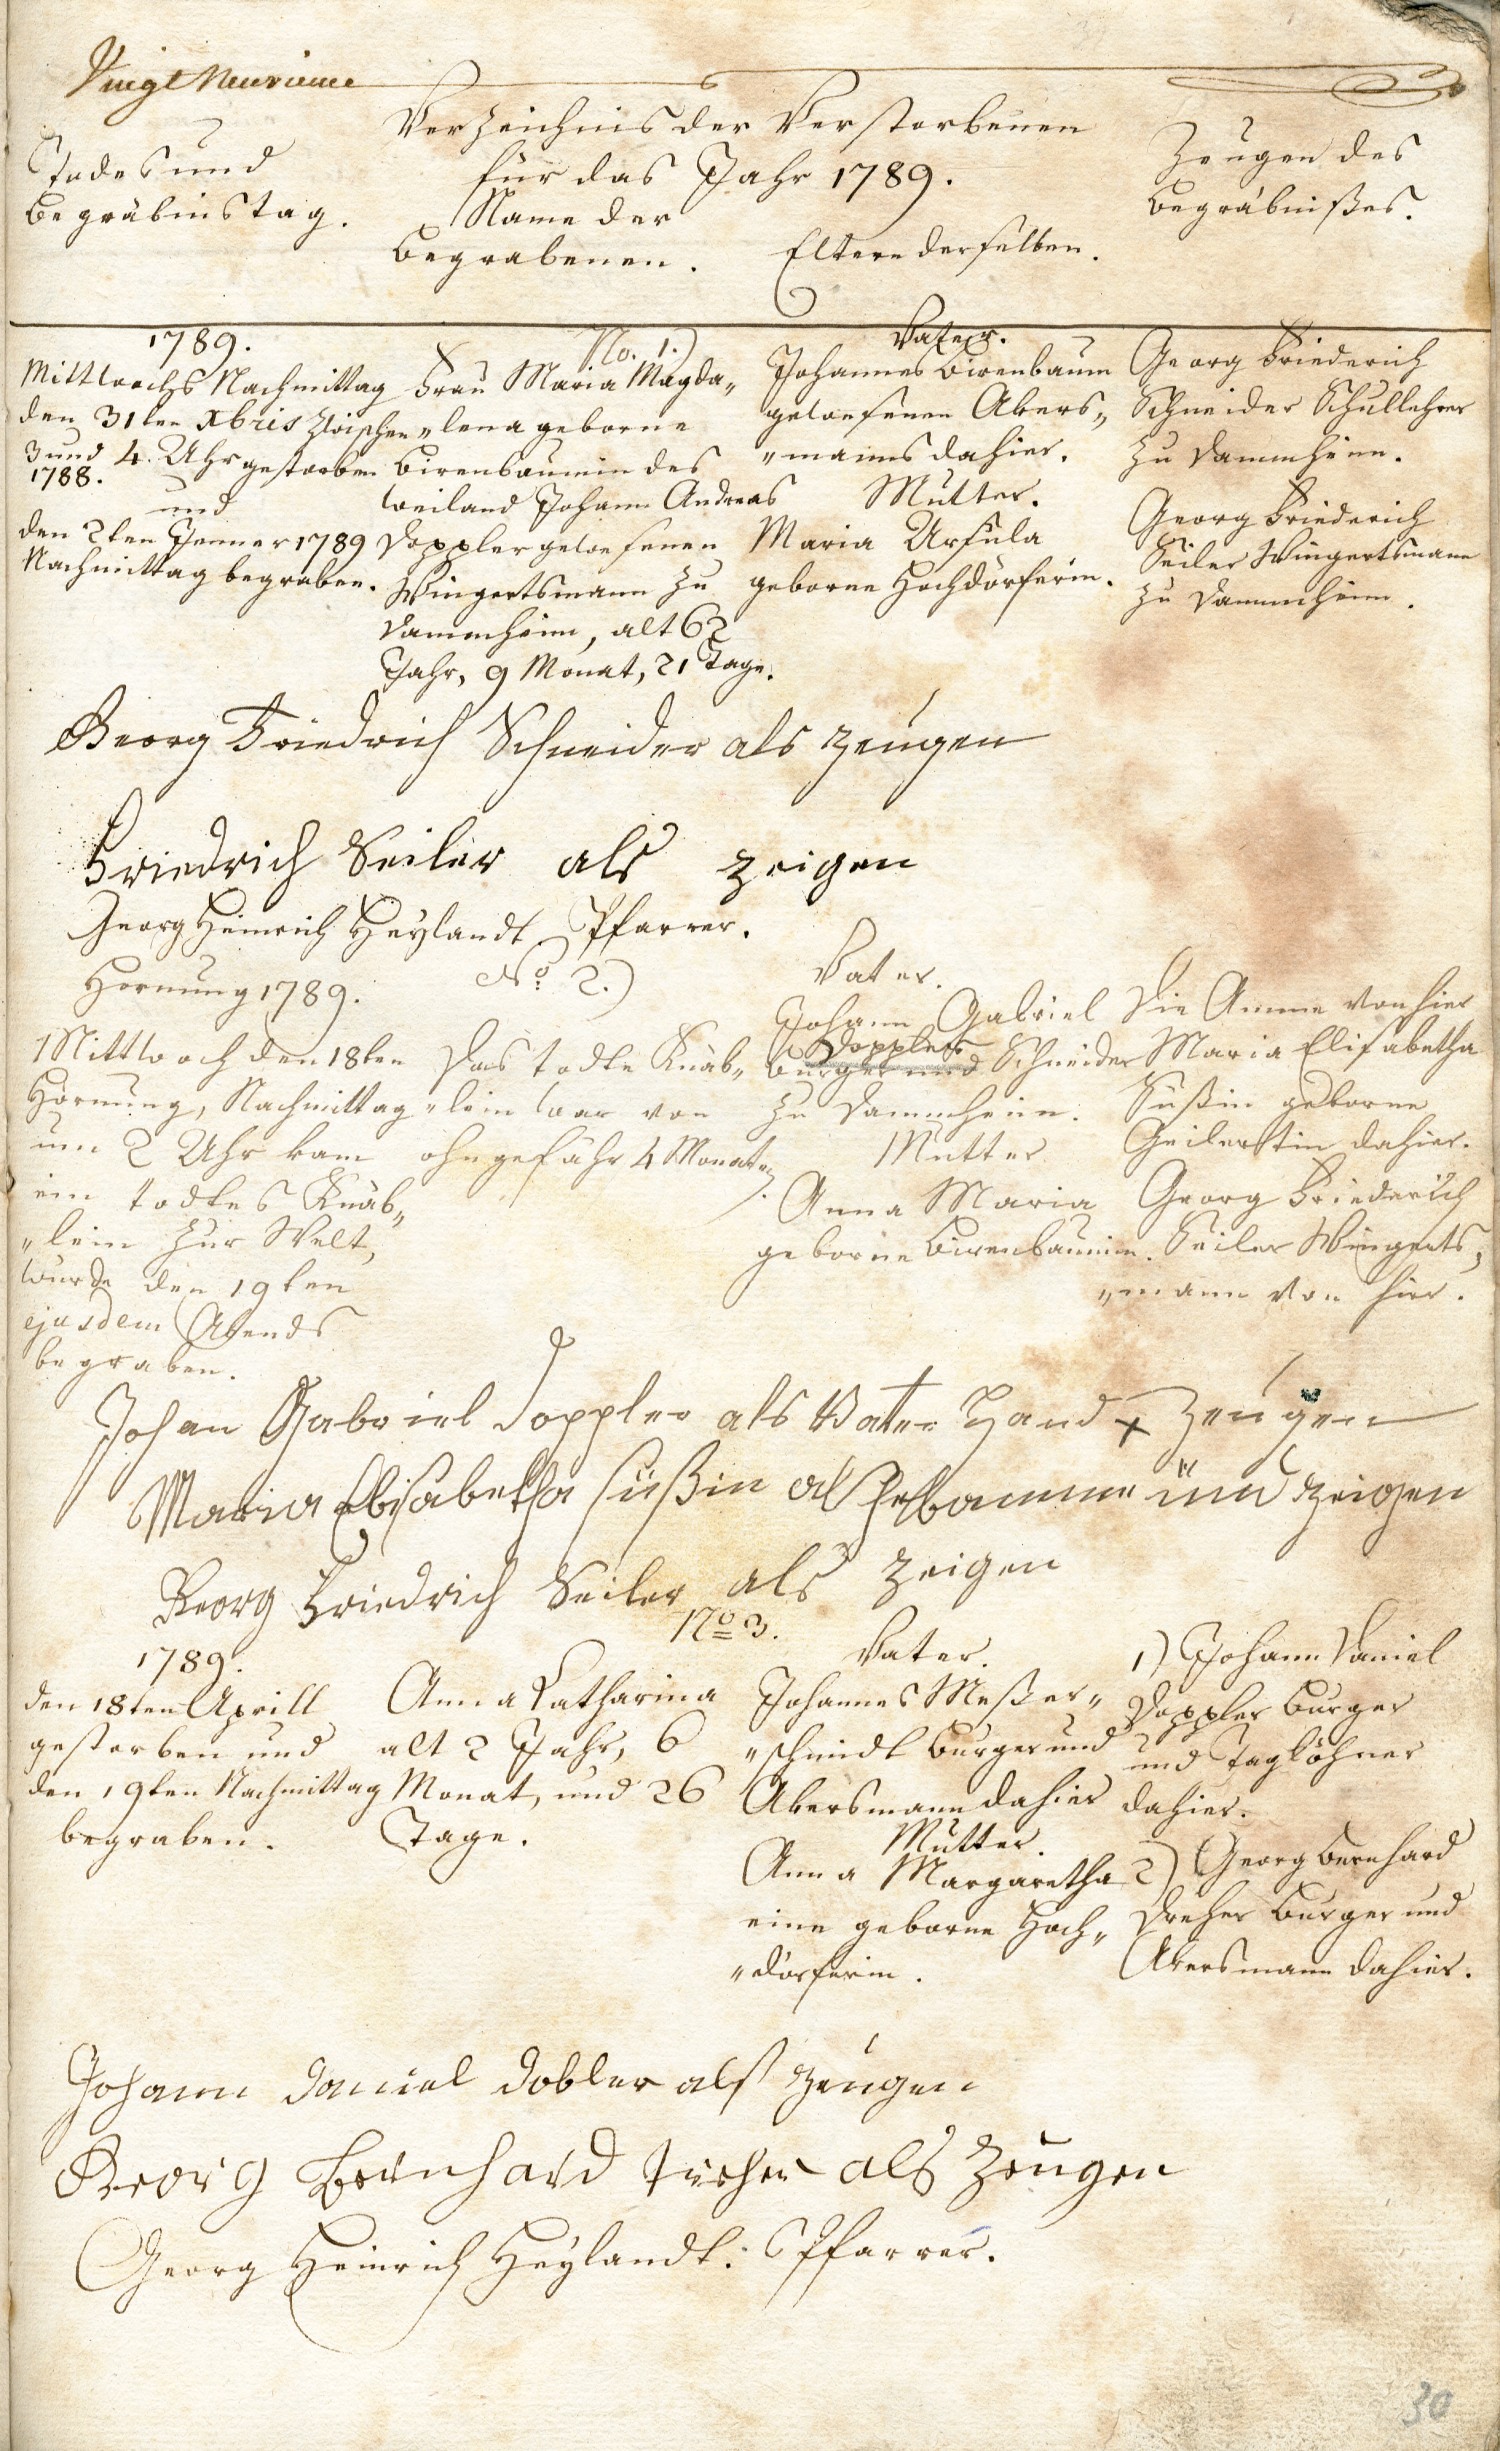 Vingt Neuvieme
Verzeichnis der Verstorbenen
für das Jahr 1789.
Todes und
Begräbnistag.
Name der
Begrabenen.
Eltern derselben.
Zeugen des
Begräbnißes.
1789.
Mittwochs Nachmittag
den 31ten Xbris zwischen
3 und 4. Uhr gestorben
1788.
und
den 2ten Jenner 1789
Nachmittag begraben.
No. 1.)
Frau Maria Magda„
„lena geborne
Birenbaumin des
weiland Johann Andreas
Doppler gewesenen
Wingertsmann zu
Dammheim, alt 62
Jahr, 9 Monat, 21 Tage.
Vater.
Johannes Birenbaum
gewesenen Akers„
„manns dahier.
Mutter.
Maria Ursula
geborne Hochdörferin.
Georg Friederich
Schneider Schullehrer
zu Dammheim.
Georg Friederich
Seiler Wingertsmann
zu Dammheim.
Georg Friedrich Schneider als zeugen
Friedrich Seiler als zeigen
Georg Heinrich Heylandt Pfarrer.
Hornung 1789.
Mittwoch den 18ten
Hornung, Nachmittag
um 2 Uhr kam
ein todtes Knäb„
„lein zur Welt,
wurde den 19ten
ejusdem Abends
begraben.
No. 2.)
Das todte Knäb„
„lein war von
ohngefähr 4 Monaten.
Vater.
Johann Gabriel
Doppler
Burger und Schneider
zu Dammheim.
Mutter
Anna Maria
geborne Birenbaumin.
Die Amme von hier
Maria Elisabetha
Süßin geborne
dahier.
Georg Friederich
Seiler Wingerts„
„mann von hier.
Johan Gabriel Doppler als Vater Hand + Zeugen
Maria Elisabetha süßin als hebamme und zeigen
Georg Friedrich Seiler als zeigen
1789.
den 18ten Aprill
gestorben und
den 19ten Nachmittag
begraben.
No 3.
Anna Catharina
alt 2 Jahr, 6
Monat, und 26
Tage.
Vater.
Johannes Meßer„
„schmidt Burger und
Akersmann dahier
Mutter.
Anna Margaretha
eine geborne Hoch„
„dörferin.
1) Johann Daniel
Doppler Burger
und Taglöhner
dahier.
2) Georg Bernhard
Dreher Burger und
Akersmann dahier.
Johann Daniel Dobler alß zeugen
Georg Bernhard als Zeugen
Georg Heinrich Heylandt: Pfarrer.
30